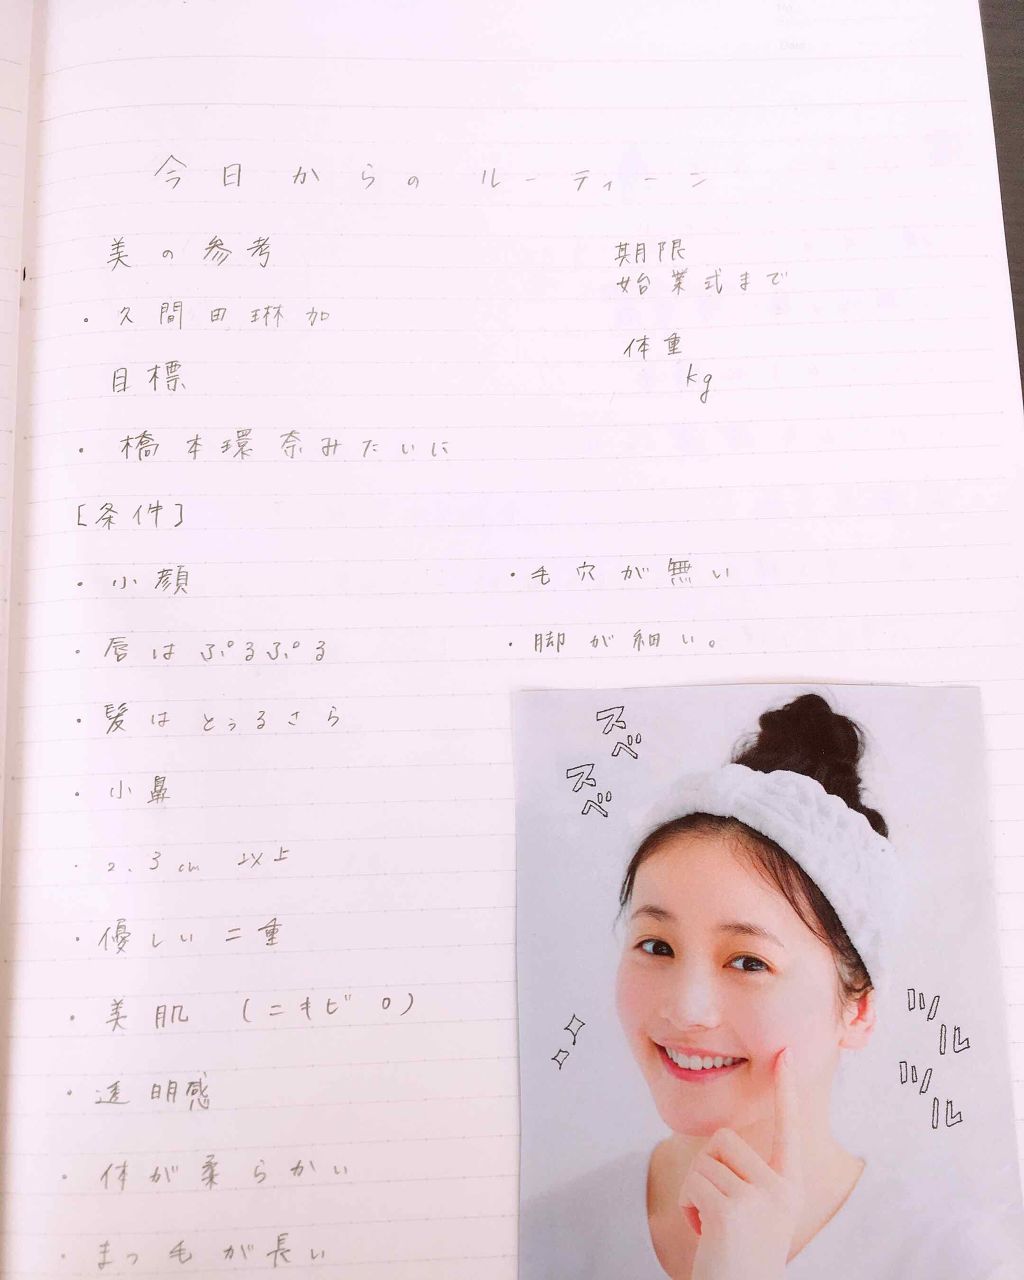 今日からのルーティーン
美の参考
・久間田琳加
目標
・橋本環奈みたいに
期限
始業式まで
体重
kg
[条件]
・小顔
・唇はぷるぷる
・髪はとぅるさら
・小鼻
・2.3cm以上
・優しい二重
・美肌 (ニキビ0)
・透明感
・体が柔らかい
・まつ毛が長い
・毛穴が無い
・脚が細い。
スベ
スベ
ツル
ツル